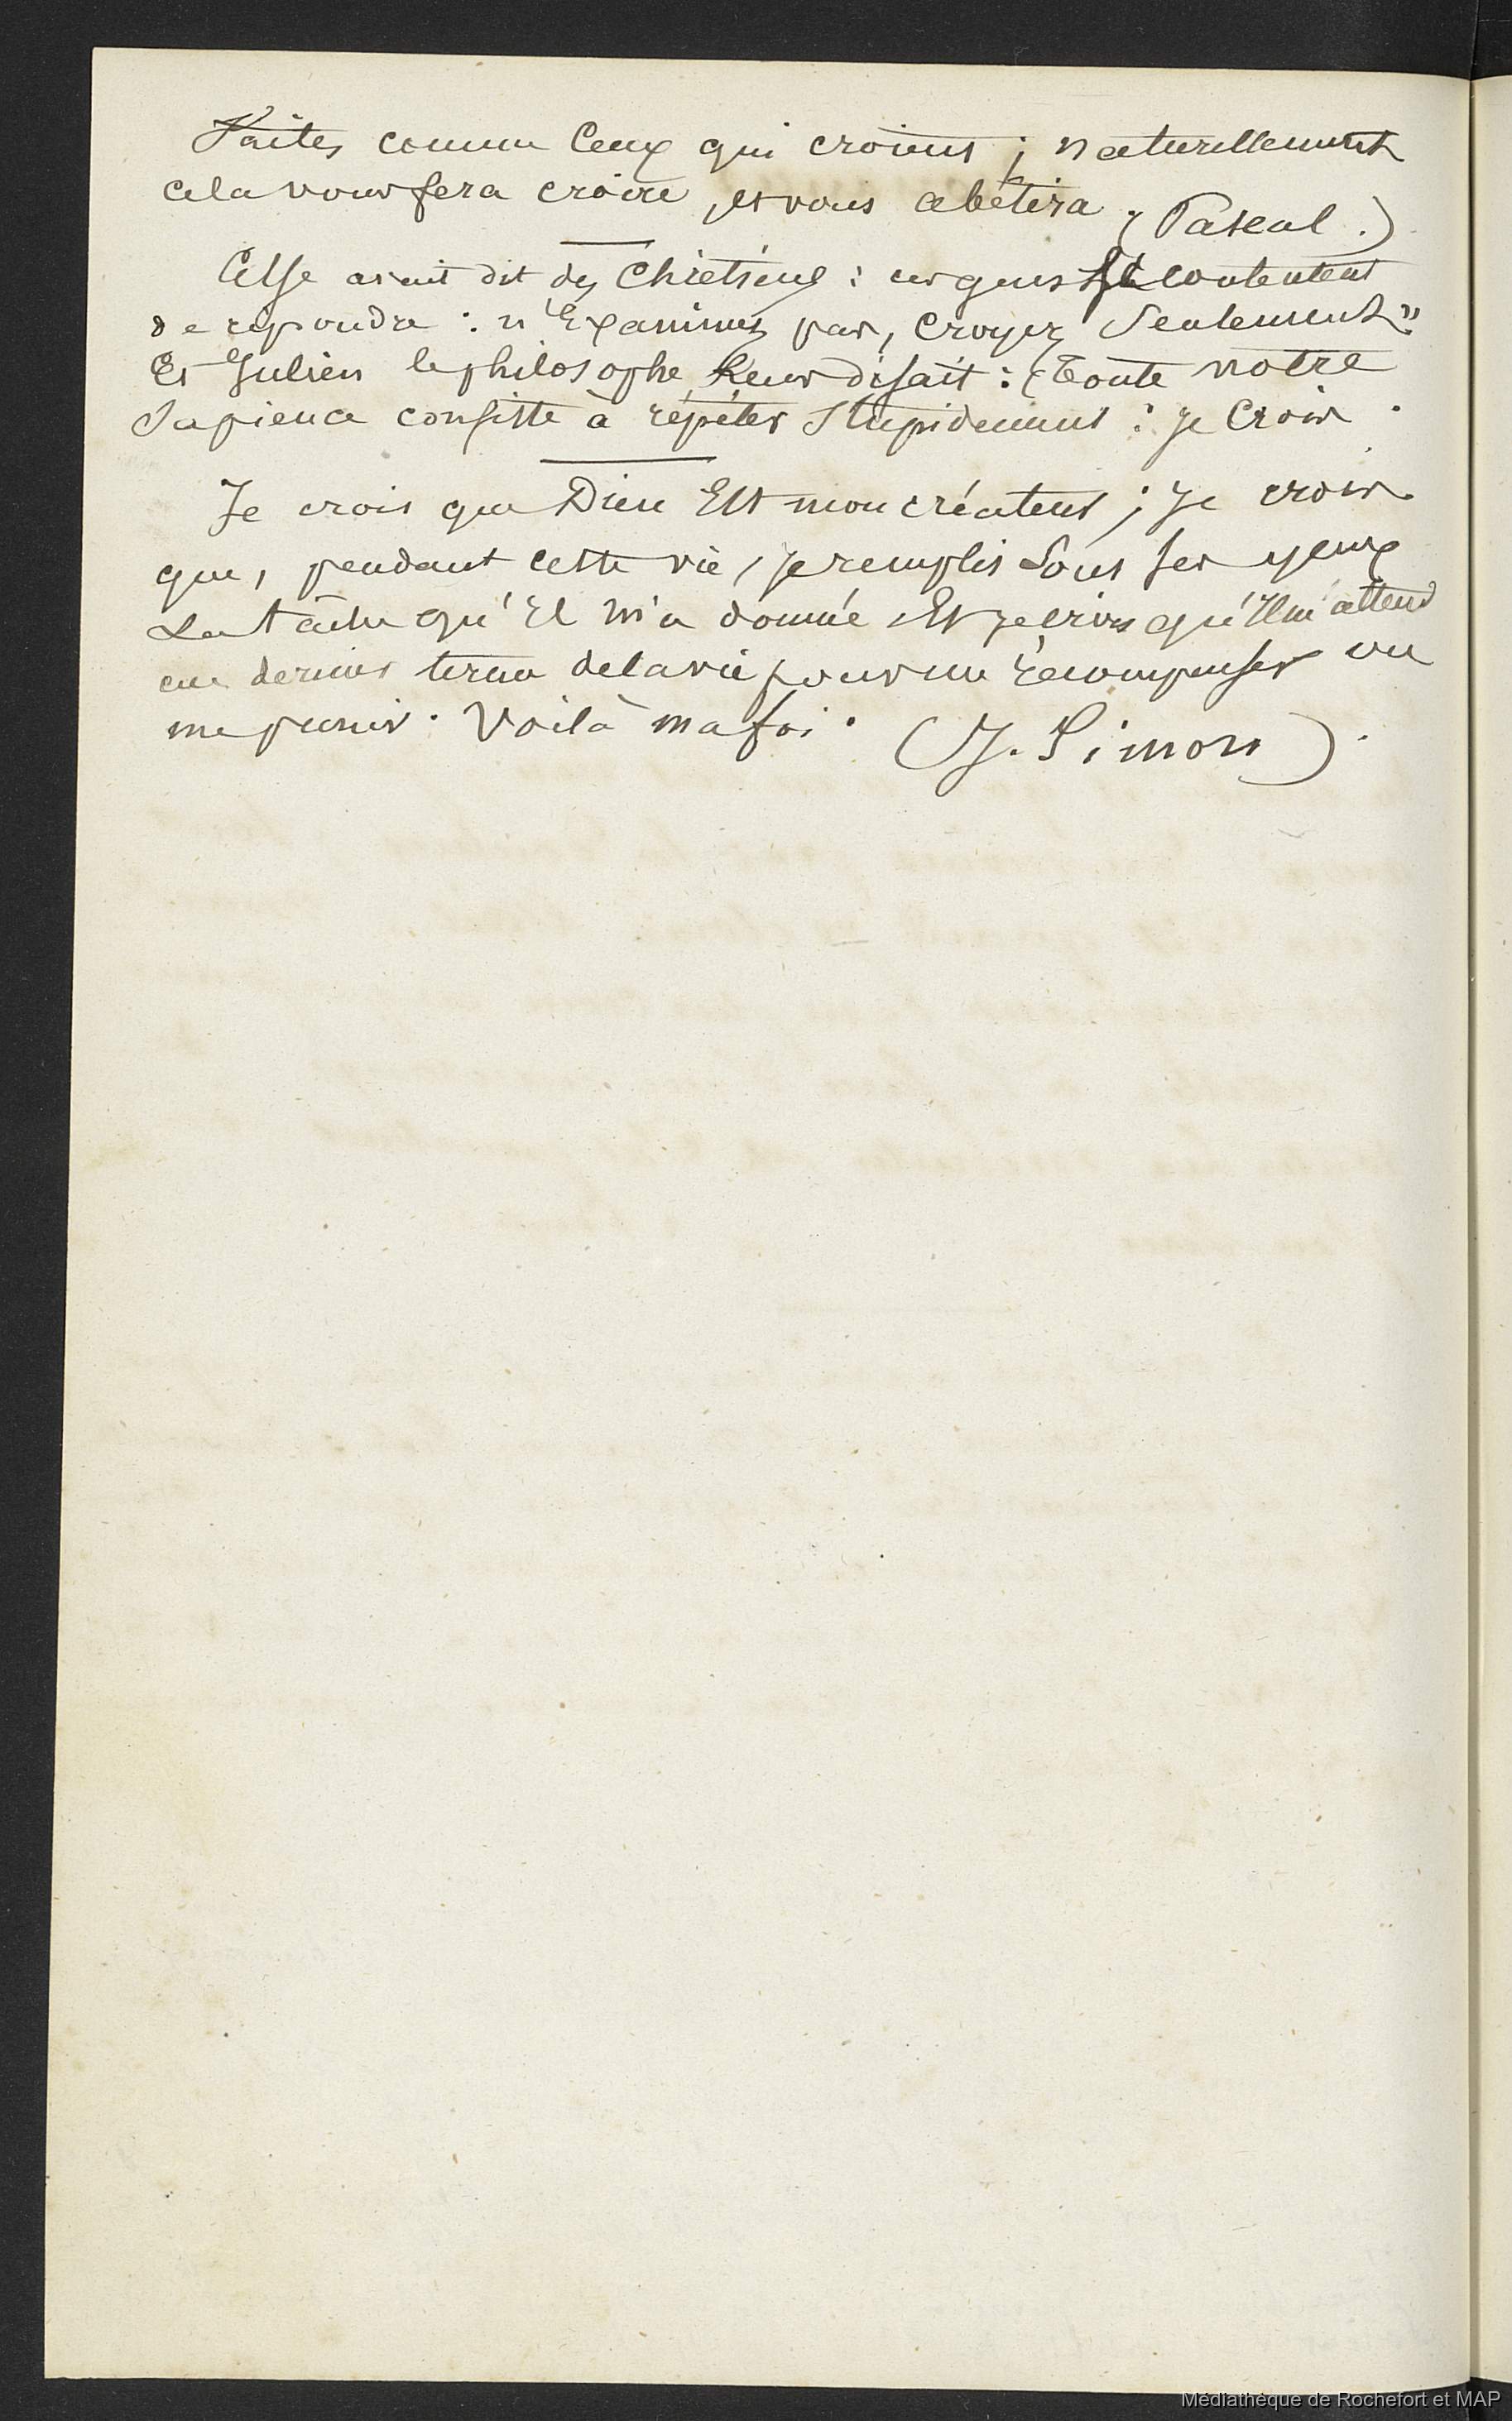 Faites comme ceux qui croient ; naturellement
cela vous fera croire, et vous abêtira. (Pascal.)
Celse avait dit des Chrétiens : ces gens se contentent
de répondre : n'Examinez pas, croyez seulement"
Et Julien le philosophe leur disait : (Toute notre
Sapience consiste à répéter Stupidement : je Crois.
Je crois que Dieu Est mon créateur ; je crois
que, pendant cette vie, je remplis sous ses yeux
La tâche qu'Il m'a donnée, Et je crois qu'Il m'attend
au dernier terme de la vie pour me récompenser ou
me punir. Voilà ma foi. (J. Simon).
Médiathèque de Rochefort et MAP